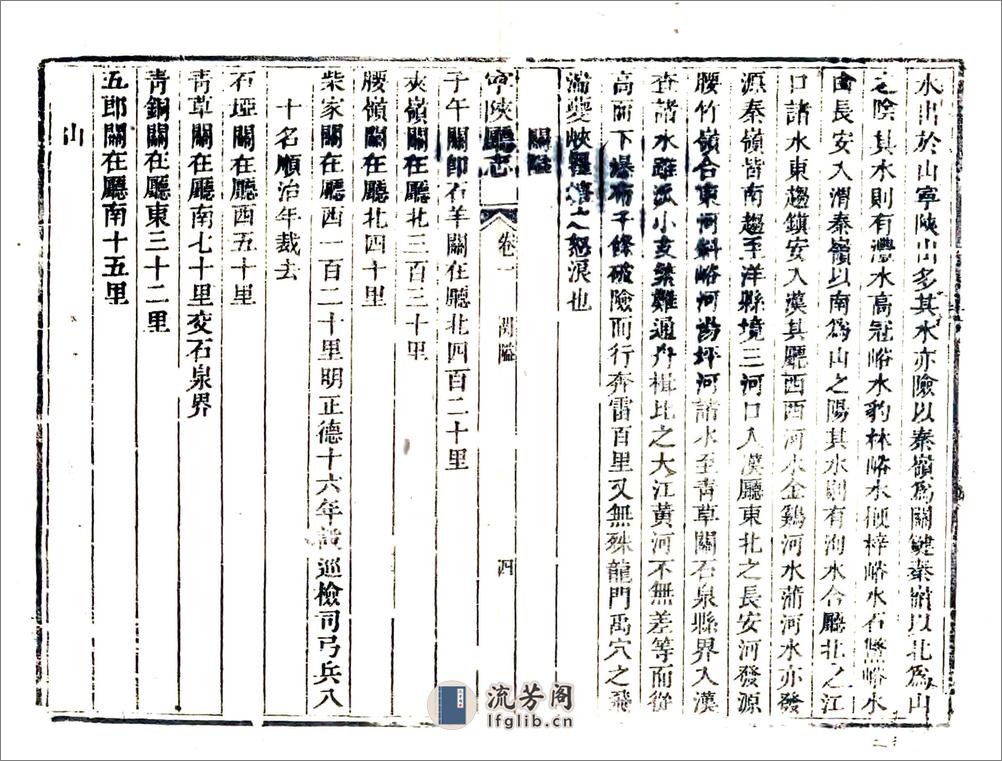 水出於山寧陝山多其水亦險以秦嶺爲關鍵秦嶺以北爲山
之陰其水則有灃水高冠峪水豹林峪水梗梓峪水石鱉峪水
由長安入渭秦嶺以南爲山之陽其水則有洵水合廳北之江
口諸水東趨鎮安入漢其廳西西河水金鷄河水蒲河水亦發
源秦嶺皆南趨至洋縣境三河口入漢廳東北之長安河發源
腰竹嶺合東河斜峪河湯坪河諸水至青草關石泉縣界入漢
查諸水雖派小支繁難通舟楫比之大江黃河不無差等而從
高而下瀑布千條破險而行奔雷百里又無殊龍門禹穴之飛
湍夔峽瞿塘之怒浪也
關隘
寧陝廳志 卷一 關隘 四
子午關即石羊關在廳北四百二十里
夾嶺關在廳北三百三十里
腰嶺關在廳北四十里
柴家關在廳西一百二十里明正德十六年設巡檢司弓兵八
十名順治年裁去
石埡關在廳西五十里
青草關在廳南七十里交石泉界
青銅關在廳東三十二里
五郎關在廳南十五里
山
流芳阁
lfglib.cn